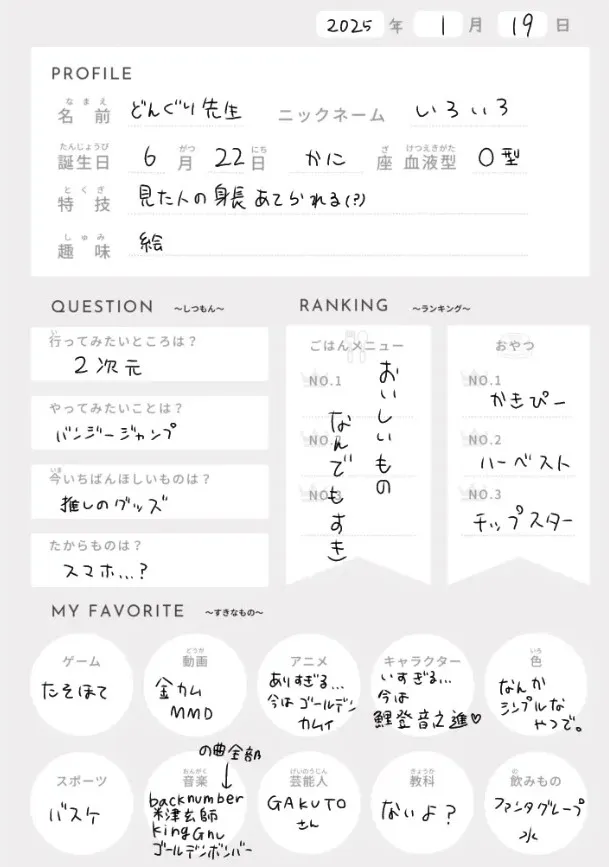 2025 年 1 月 19 日
PROFILE
なまえ
名前 どんぐり先生 ニックネーム いろいろ
たんじょうび がつ にち ざ けつえきがた
誕生日 6 月 22 日 かに 座 血液型 O型
とくぎ
特技 見た人の身長あてられる(?)
しゅみ
趣味 絵
QUESTION ～しつもん～
い
行ってみたいところは?
2次元
やってみたいことは?
バンジージャンプ
いま
今いちばんほしいものは?
推しのグッズ
たからものは?
スマホ...?
RANKING ～ランキング～
ごはんメニュー
NO.1
NO.2
NO.3
おいしいもの
なんでもすき)
おやつ
NO.1
かきぴー
NO.2
ハーベスト
NO.3
チップスター
MY FAVORITE ～すきなもの～
ゲーム
たそほて
どうが
動画
金カム
MMD
アニメ
ありすぎる...
今はゴールデン
カムイ
キャラクター
いすぎる...
今は
鯉登音之進♡
いろ
色
なんか
シンプルな
やつで。
スポーツ
バスケ
の曲全部
↓
おんがく
音楽
backnumber
米津玄師
king Gnu
ゴールデンボンバー
げいのうじん
芸能人
GAKUTO
さん
きょうか
教科
ないよ?
の
飲みもの
ファンタグレープ
水